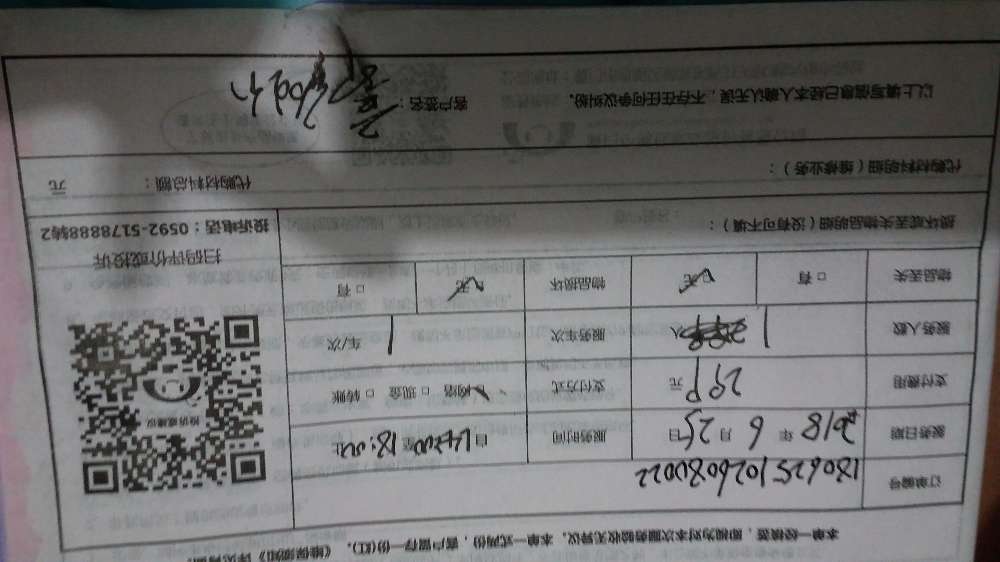 本单一经签, 即视为对本次服务验收无异议。本单一式两份, 客户留存一份(红)。
订单编号 1806251026080022
服务日期 2018 年 6 月 25 日 服务时间 自 14:00 至 18:00 止
支付费用 299 元 支付方式 ☑网络 □ 现金 □ 转账
服务人数 1 人 服务车次 1 车/次
物品丢失 □ 有 ☑无 物品损坏 ☑无 □ 有
投诉或建议
扫码评价或投诉
投诉电话:0592-5178888转2
损坏或丢失物品明细(没有可不填):
代购材料明细(维修业务): 代购材料总额: 元
以上填写信息已经本人确认无误,不存在任何争议纠纷。 客户签名: